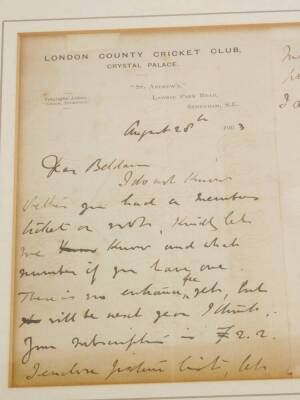 LONDON COUNTY CRICKET CLUB,
CRYSTAL PALACE.
"St. Andrew's,"
Lawrie Park Road,
Sydenham, S.E.
August 28th 1903
Dear Beldam
I do not know
whether you had a members
ticket or not. Kindly let
me know and what
number if you have one.
There is no entrance fee yet, but
will be next year I think.
Your subscription is £2.2.
I enclose